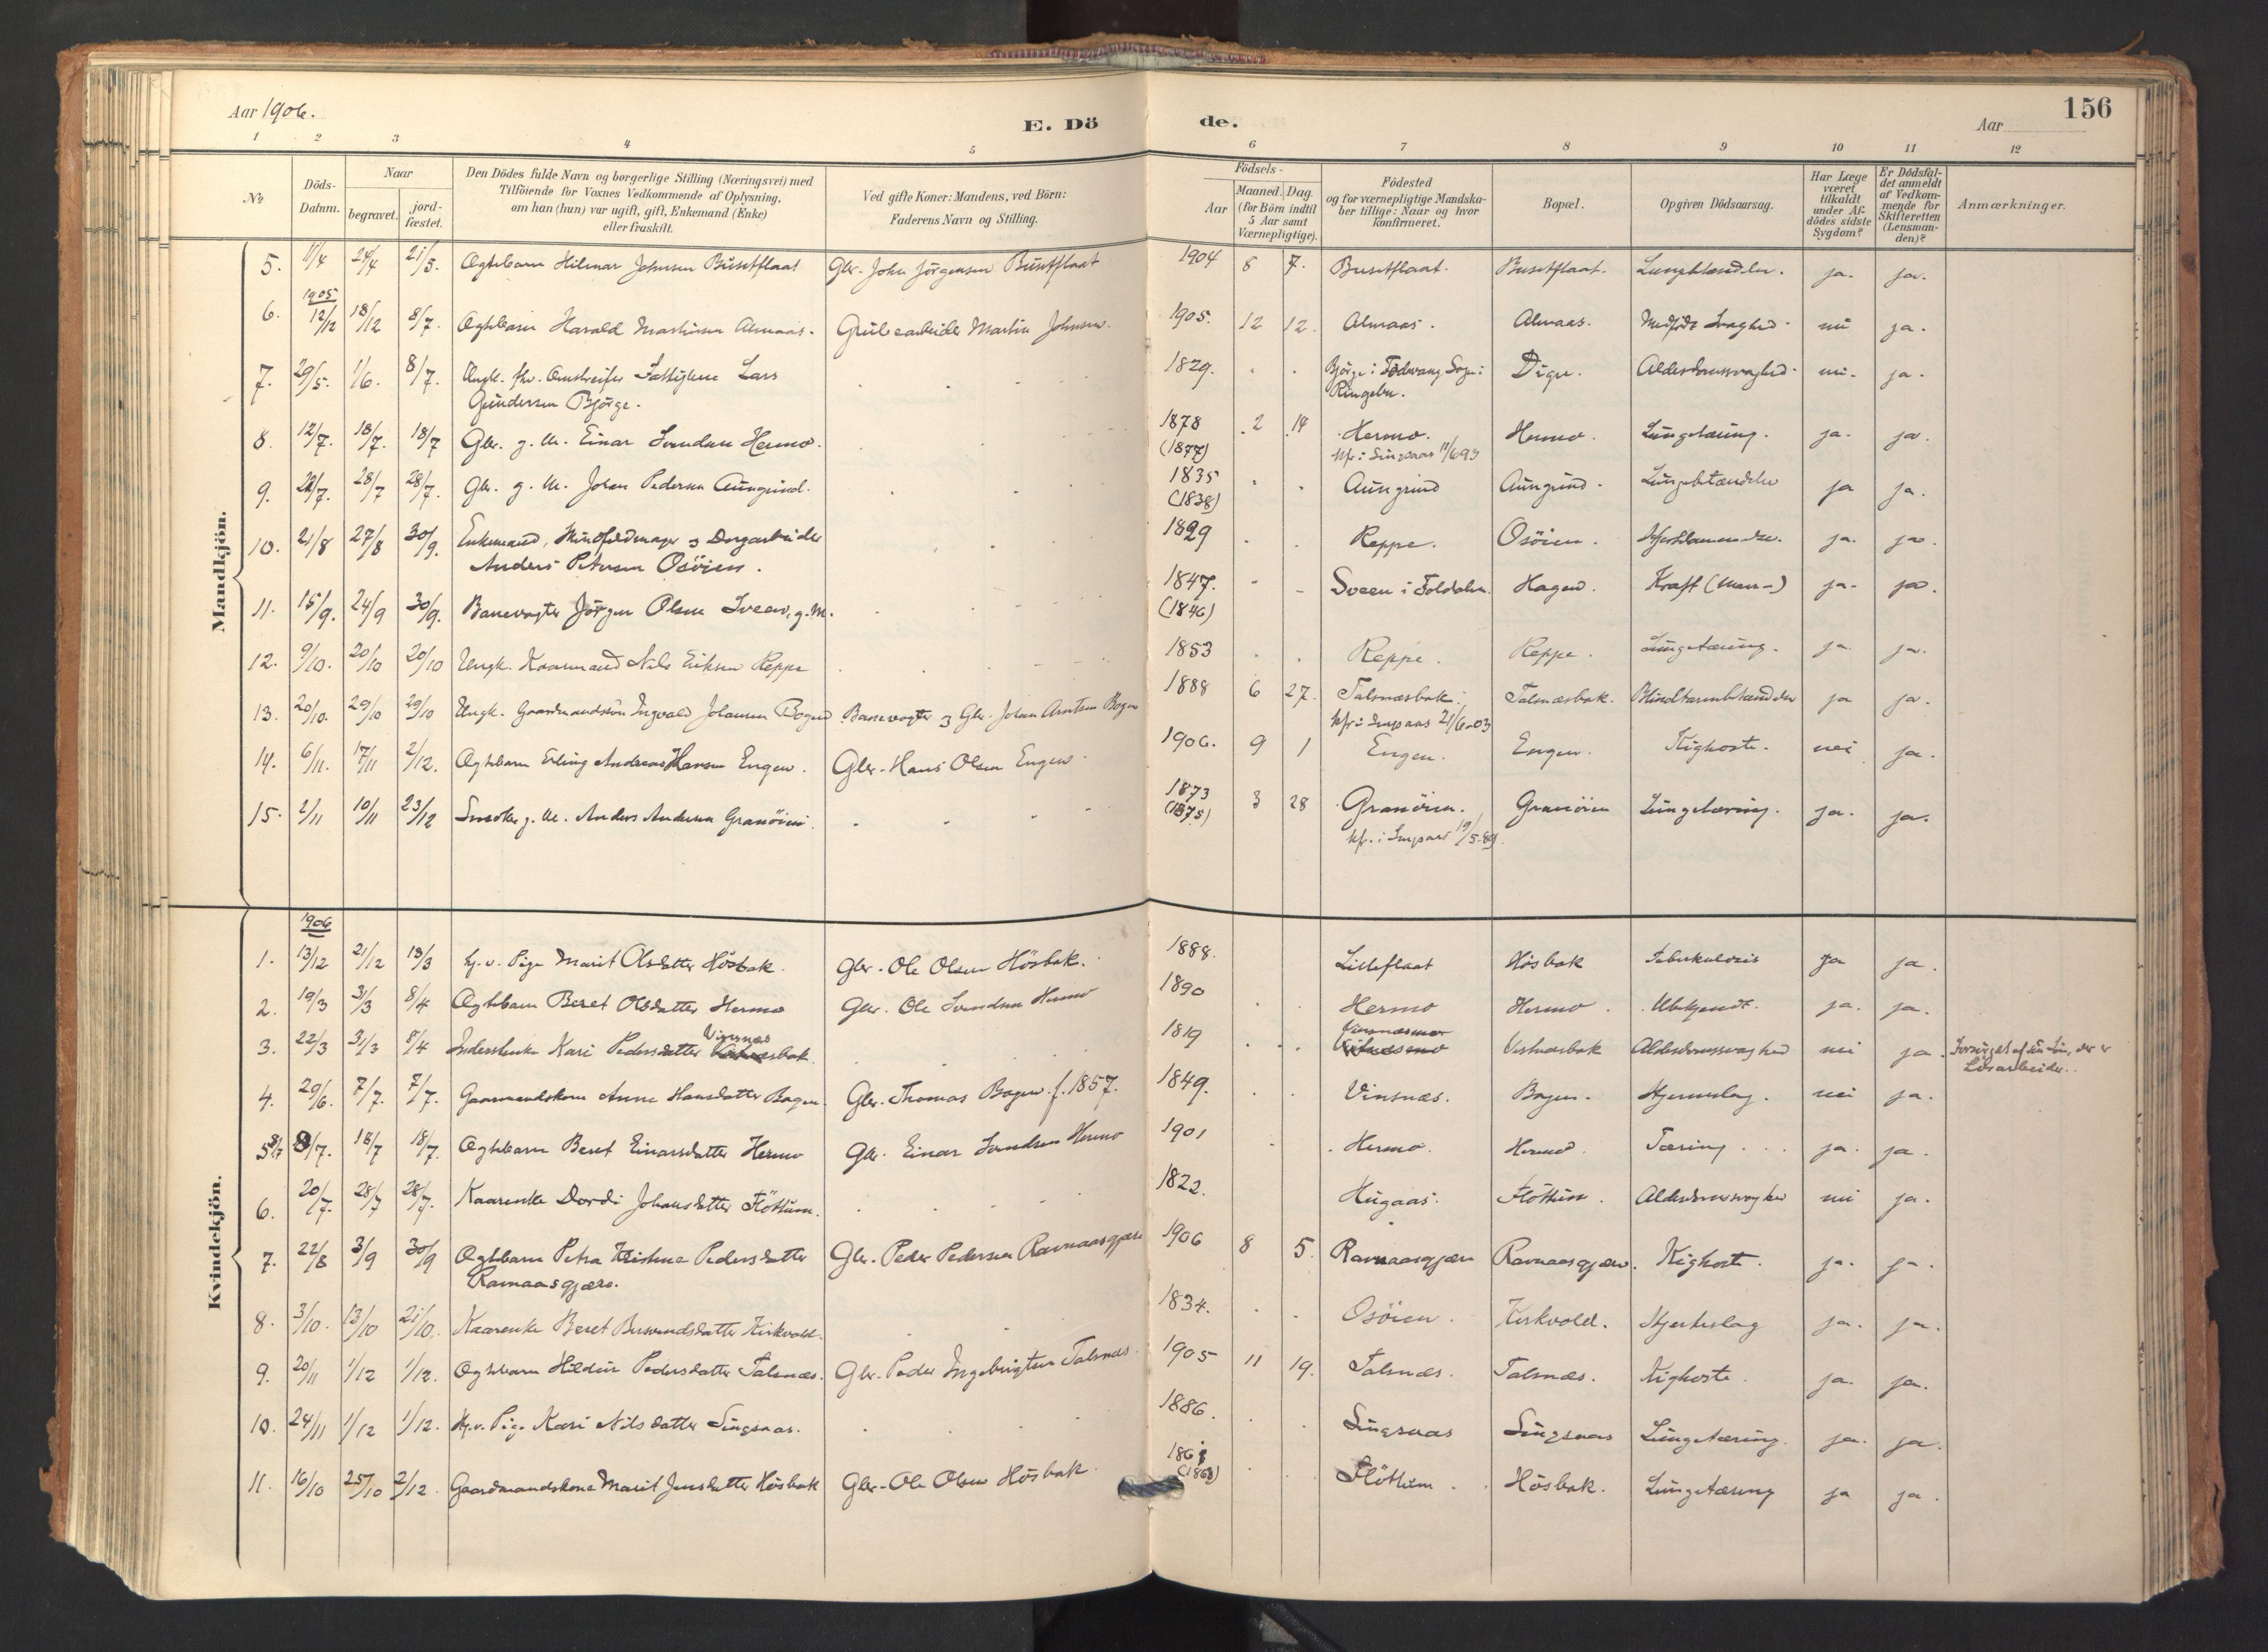 Aar 1906.
E. Dö
de.
Aar
156
1 2 3 4 5 6 7 8 9 10 11 12
№
Döds-
Datum.
Naar
begravet.
jord-
fæstet.
Den Dödes fulde Navn og borgerlige Stilling (Næringsvei) med
Tilföiende for Voxnes Vedkommende af Oplysning,
om han (hun) var ugift, gift, Enkemand (Enke)
eller fraskilt.
Ved gifte Koner: Mandens, ved Börn:
Faderens Navn og Stilling.
Födsels-
Aar
Maaned. Dag.
(for Börn indtil
5 Aar samt
Værnepligtige).
Födested
og for værnepligtige Mandska-
ber tillige: Naar og hvor
konfirmeret.
Bopæl.
Opgiven Dödsaarsag.
Har Læge
været
tilkaldt
under Af-
dödes sidste
Sygdom?
Er Dödsfal-
det anmeldt
af Vedkom-
mende for
Skifteretten
(Lensman-
den)?
Anmærkninger.
Mandkjön.
5. 11/4 24/4 21/5. Ægtebarn Hilmar Johnsen Busetflaat Gbr. John Jörgensen Busetflaat 1904 6 7. Busetflaat. Busetflaat. Lungebetændelse. ja. ja.
1905
6. 12/12 18/12 8/7. Ægtebarn Harald Martinsen Almaas. Grubearbeider Martin Johnsen. 1905. 12 12. Almaas. Almaas. Medfödt Svaghed. nei ja.
7. 29/5. 1/6. 8/7. Ungk. fhv. Omstreifer Fattiglem Lars 1829. Björge i Fodvang Sogn i Digre. Alderdomssvaghed. nei. ja.
Gundersen Björge. Ringebu.
8. 12/7. 18/7. 18/7 Gbr. g. M. Einar Svendsen Hermo. 1878 2 14 Hermo. Hermo. Lungetæring. ja. ja.
(1877) kfr. i Singsaas 11/6 93
9. 21/7. 28/7 28/7. Gbr. g. M. Johan Pedersen Aungrind. 1835 Aungrind Aungrind. Lungebetændelse ja ja.
(1838)
10. 21/8 27/8 30/9. Enkemand, Skindfeldmager og Dagarbeider 1829 Reppe. Osöien. ja. ja.
Anders Petersen Osöien.
11. 15/9. 24/9 30/9. Banevogter Jörgen Olsen Sveen, g. M. 1847. Sveen i Foldalen. Hagen. Kræft (Mave-) ja. ja.
(1846)
12. 9/10. 20/10 20/10 Ungk. Kaarmand Nils Eriksen Reppe 1853 Reppe. Reppe. Lungetæring. ja ja.
13. 20/10. 29/10 29/10 Ungk. Gaardmandssön Ingvald Johansen Bogen Banevogter og Gbr. Johan Arntsen Bogen 1888 6 27. Talsnæsbak. Talsnæsbak. Blindtarmbetændelse ja ja.
kfr. i Singsaas 21/6-03
14. 6/11. 17/11 2/12. Ægtebarn Erling Andreas Hansen Engen. Gbr. Hans Olsen Engen. 1906. 9 1 Engen. Engen. Kighoste. nei ja.
15. 2/11 10/11 23/12 Snedker g. M. Anders Andersen Granöien. 1873 3 28 Granöien. Granöien Lungetæring. ja. ja.
(1875) kfr. i Singsaas 19/5-89.
Kvindekjön.
1906
1. 13/12 21/12 18/3 Hj. v. Pige Marit Olsdatter Hösbak. Gbr. Ole Olsen Hösbak. 1888. Litleflaat Hösbak Tuberkulosis ja ja.
2. 19/3 31/3 8/4 Ægtebarn Beret Olsdatter Hermo Gbr. Ole Svendsen Hermo 1890 Hermo Hermo. Ubekjendt. ja. ja.
3. 22/3 31/3 8/4 Inderstenke Kari Pedersdatter Vinsnæsbak. 1819 Vinsnæsmo Vestnæsbak Alderdomssvaghed nei ja. Forsörget af sin Sön, der er
Lösarbeider.
4. 29/6. 7/7. 7/7. Gaarmandskone Anne Hansdatter Bogen. Gbr. Thomas Bogen f. 1857. 1849. Vinsnæs. Bogen. Hjerneslag. nei ja.
5. 8/7. 18/7 18/7. Ægtebarn Beret Einarsdatter Hermo Gbr. Einar Svendsen Hermo 1901 Hermo. Hermo. Tæring ja. ja.
6. 20/7. 28/7 28/7. Kaarenke Dordi Johansdatter Flöttum. 1822. Hugaas. Flöttum. Alderdomssvaghed nei ja.
7. 22/8 3/9 30/9 Ægtebarn Petra Kristine Pedersdatter Gbr. Peder Pedersen Ravnaasgjære 1906 8 5. Ravnaasgjære Ravnaasgjære. Kighoste. ja. ja.
Ravnaasgjære.
8. 3/10. 13/10 21/10. Kaarenke Beret Bersvendsdatter Kirkvold. 1834. Osöien. Kirkvold. Hjerteslag ja. ja.
9. 20/11 1/12 1/12. Ægtebarn Hildur Pedersdatter Talsnæs. Gbr. Peder Ingebrigtsen Talsnæs. 1905 11 19. Talsnæs. Talsnæs. Kighoste. ja. ja.
10. 24/11 1/12 1/12. Hj. v. Pige Kari Nilsdatter Singsaas. 1886. Singsaas Singsaas Lungetæring. ja. ja.
11. 16/10 25/10 2/12. Gaardmandskone Marit Jensdatter Hösbak Gbr. Ole Olsen Hösbak. 1861 Flöttum. Hösbak. Lungetæring ja ja.
(1868)